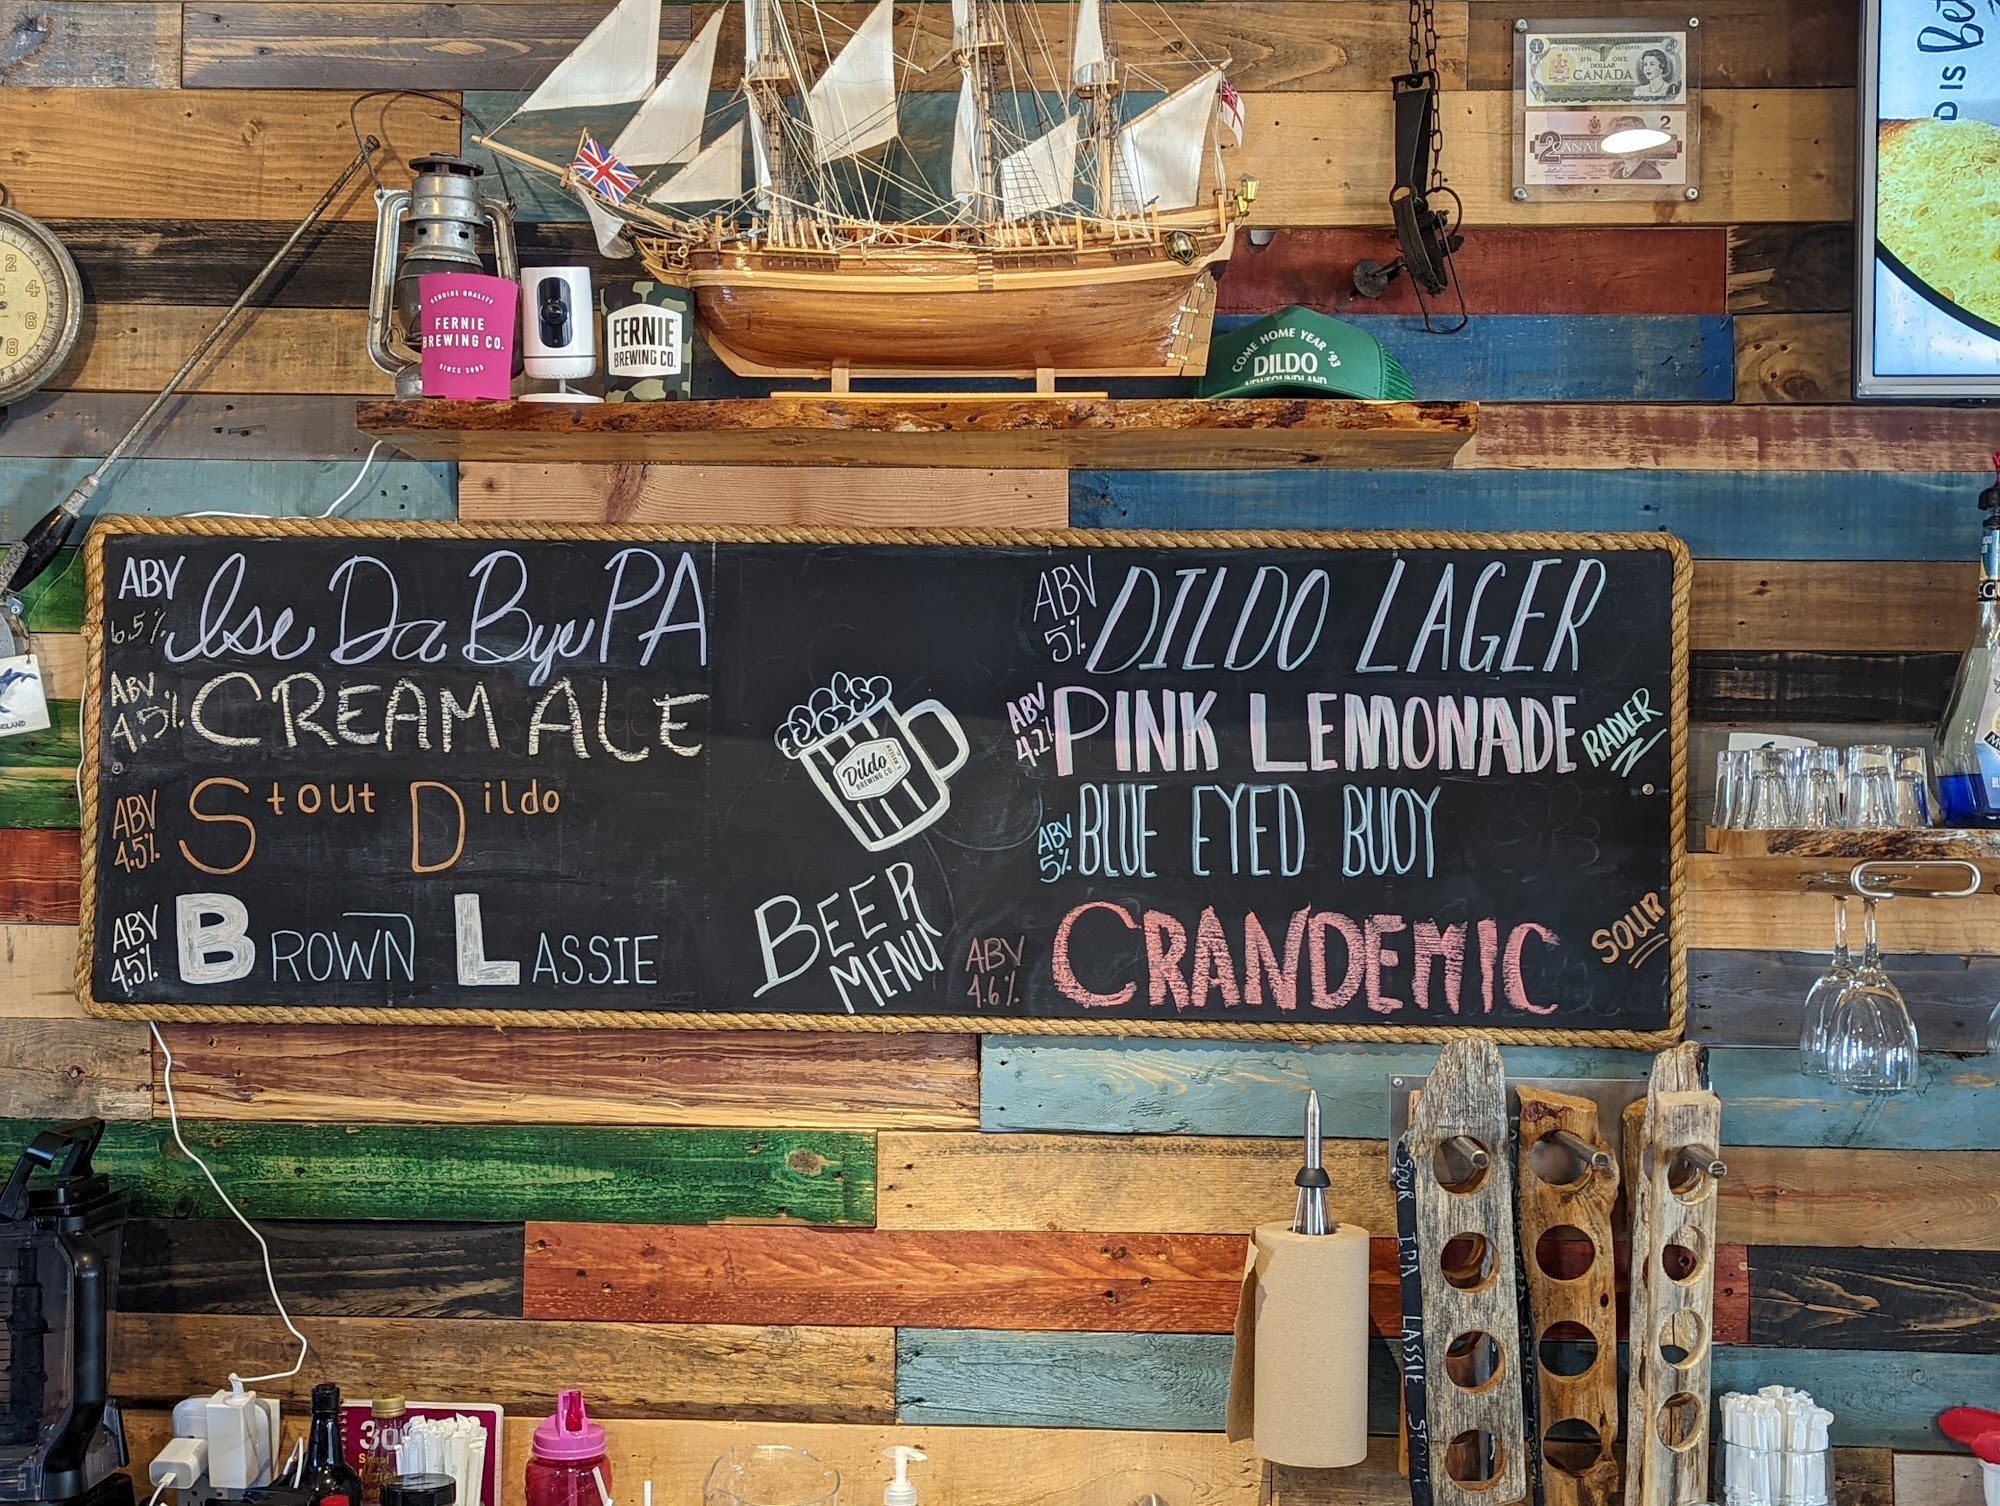 UN 1 ONE
DOLLAR
CANADA
2 2
D IS Bet
2
4
6
8
GENUINE QUALITY
FERNIE
BREWING CO.
SINCE 2003
FERNIE
BREWING CO.
COME HOME YEAR '93
DILDO
NEWFOUNDLAND
ABV
6.5%
Ise Da Bye PA
ABV
4.5%
CREAM ALE
ABV
4.5%
Stout Dildo
ABV
4.5%
BROWN LASSIE
Dildo
BREWING CO.
BEER
MENU
ABV
5%
DILDO LAGER
ABV
4.2%
PINK LEMONADE
RADLER
ABV
5%
BLUE EYED BUOY
ABV
4.6%
CRANDEMIC
SOUR
SOUR IPA LASSIE STOUT
30